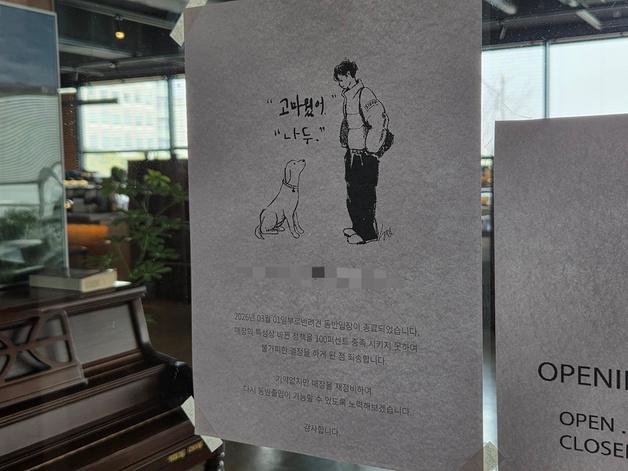 "고마웠어."
"나두."
2026년 03월 01일부로반려견 동반입장이 종료되었습니다.
매장의 특성상 바뀐 정책을 100퍼센트 충족 시키지 못하여
불가피한 결정을 하게 된 점 죄송합니다.
기약없지만 매장을 재정비하여
다시 동반출입이 가능할 수 있도록 노력해보겠습니다.
감사합니다.
OPENI
OPEN .
CLOSE